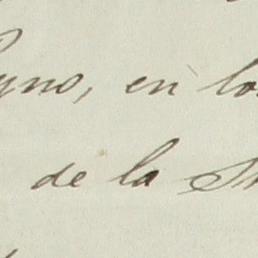 yno, en lo
de la S